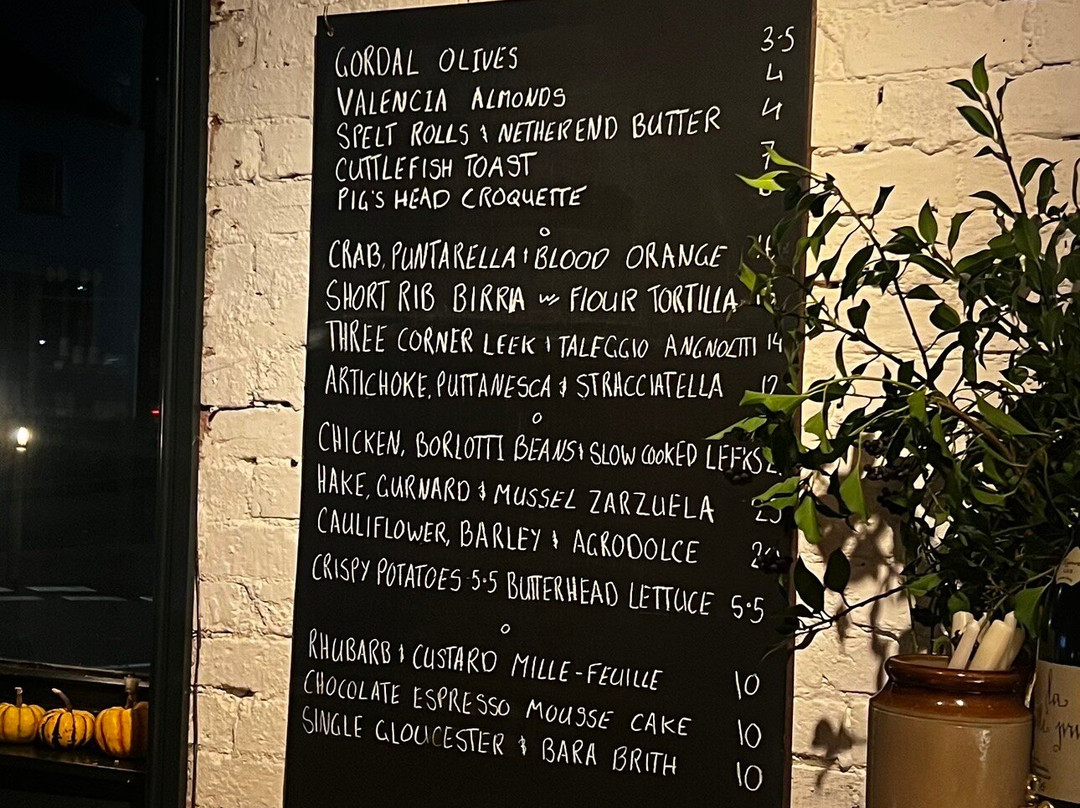 GORDAL OLIVES 3.5
VALENCIA ALMONDS 4
SPELT ROLLS & NETHEREND BUTTER 4
CUTTLEFISH TOAST 7
PIG'S HEAD CROQUETTE
CRAB, PUNTARELLA & BLOOD ORANGE
SHORT RIB BIRRIA w FLOUR TORTILLA
THREE CORNER LEEK & TALEGGIO ANGNOLTTI 14
ARTICHOKE, PUTTANESCA & STRACCIATELLA 12
CHICKEN, BORLOTTI BEANS & SLOW COOKED LEEKS
HAKE, GURNARD & MUSSEL ZARZUELA
CAULIFLOWER, BARLEY & AGRODOLCE
CRISPY POTATOES 5.5 BUTTERHEAD LETTUCE 5.5
RHUBARB & CUSTARD MILLE-FEUILLE 10
CHOCOLATE ESPRESSO MOUSSE CAKE 10
SINGLE GLOUCESTER & BARA BRITH 10
la